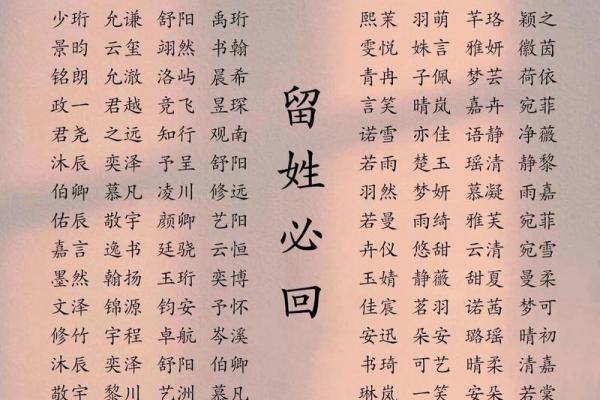 少珩 允谦 舒阳 禹珩
景昀 云玺 翊然 书翰
铭朗 允澈 洛屿 晨希
政一 君越 竞飞 昱琛
君尧 之远 知行 观南
沐辰 奕泽 予呈 舒阳
伯卿 慕凡 凌川 修远
佑辰 敬宇 颜卿 艺阳
嘉言 逸书 廷骁 云恒
墨然 翰扬 玉珩 奕博
文泽 锦源 钧安 予怀
修竹 宇程 卓航 岑溪
沐辰 奕泽 舒阳 伯卿
敬宇 黎川 艺洲 慕凡
留姓必回
熙茉 羽萌 芊珞 颖之
雯悦 姝言 雅妍 徽茵
青冉 子佩 梦芸 荷依
言笑 晴岚 嘉卉 宛菲
诺雪 亦佳 语静 净薇
若雨 楚玉 瑶清 静黎
羽然 梦妍 慕凝 雨嘉
若曼 雨绮 雅芙 宛菲
卉仪 悠甜 云清 宛雪
玉婧 静薇 甜夏 曼柔
佳宸 茗羽 诺茜 梦可
安迅 朵安 璐瑶 晴初
书琦 可艺 晴柔 清嘉
琳岚 一笑 安朵 若棠